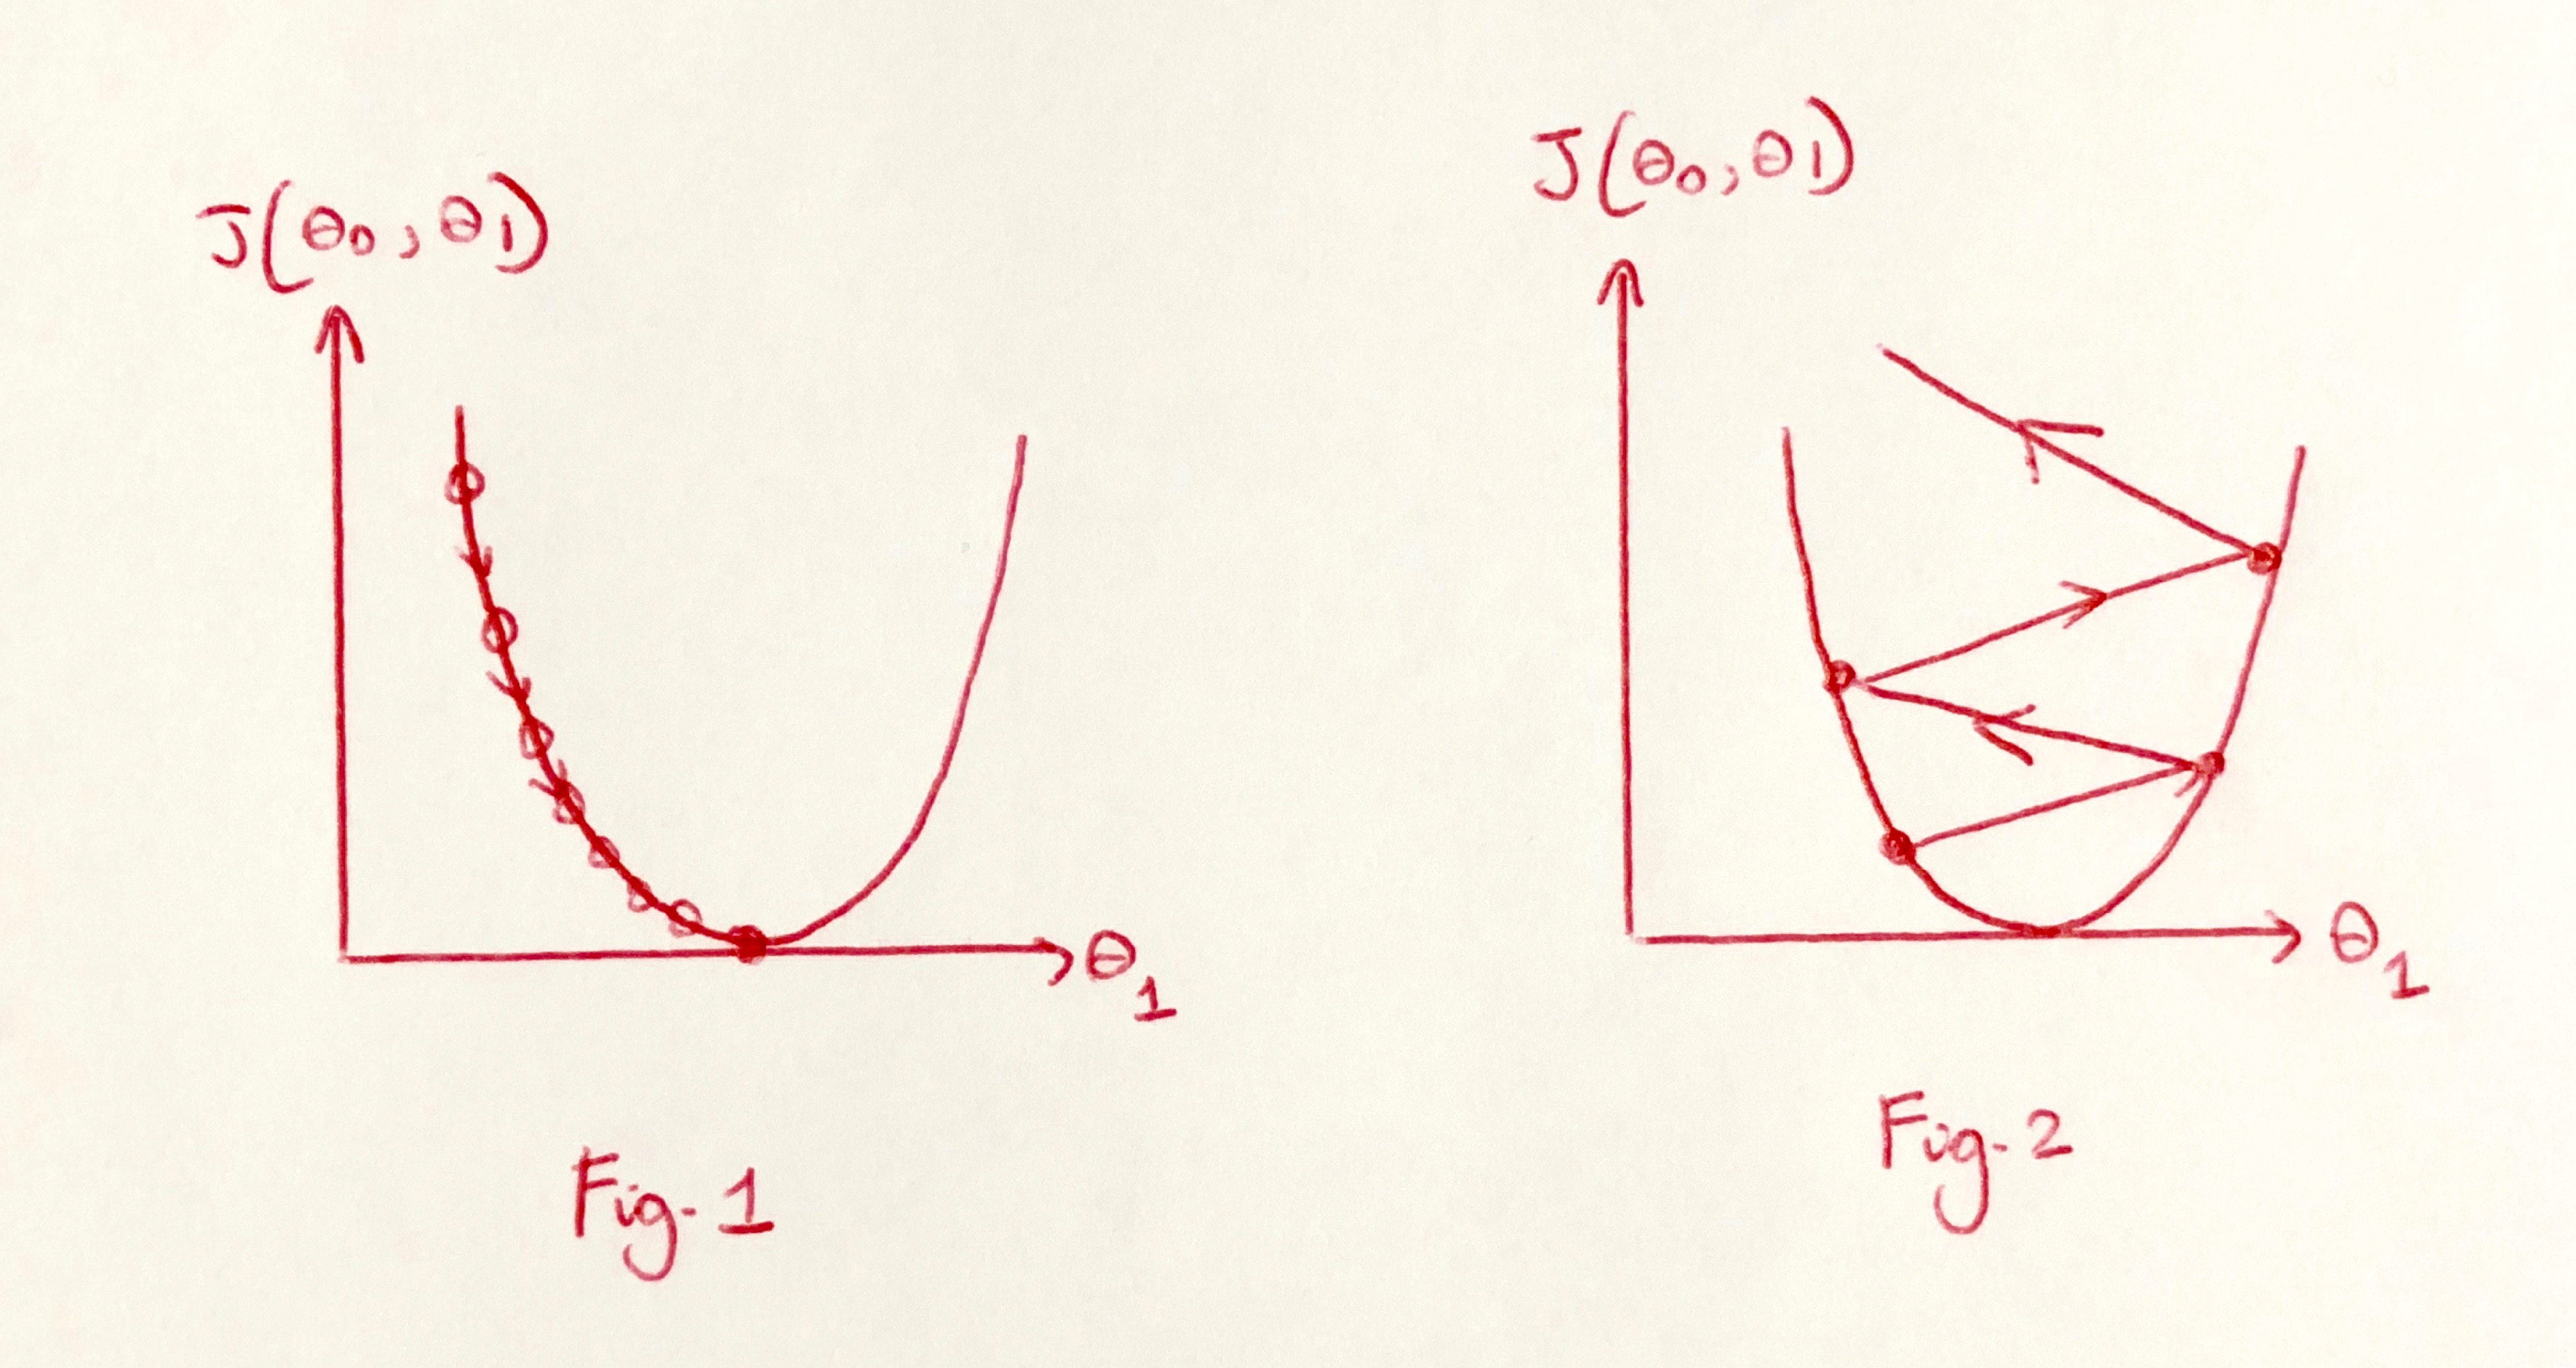 J(θ₀, θ1)
θ₁
Fig-1
J(θ₀, θ1)
θ₁
Fig-2